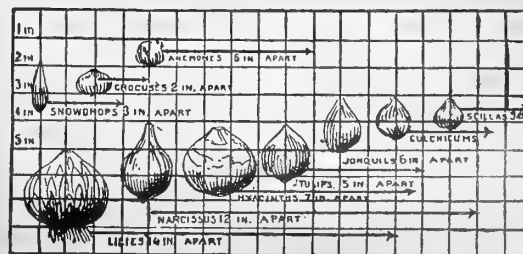 1 IN
2 IN
ANEMONES 6 IN APART
3 IN
CROCUSES 2 IN. APART
4 IN
SNOWDROPS 3 IN. APART
SCILLAS
COLCHICUMS
5 IN
JONQUILS 6 IN APART
TULIPS. 5 IN APART
HYACINTHS 7 IN. APART
NARCISSUS 12 IN. APART
LILIES 14 IN. APART